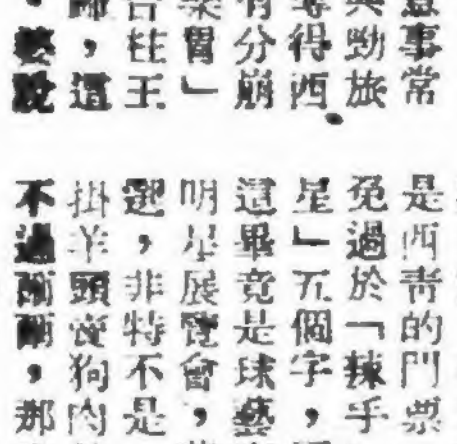 事常
勁旅
得西
有分崩
冒」
柱王
，這
說
是西青的門票
免過於「辣乎
星」五個字，
這畢竟是球藝
明星展覽會，
選，非特不是
掛羊頭賣狗肉
不過爾爾，那